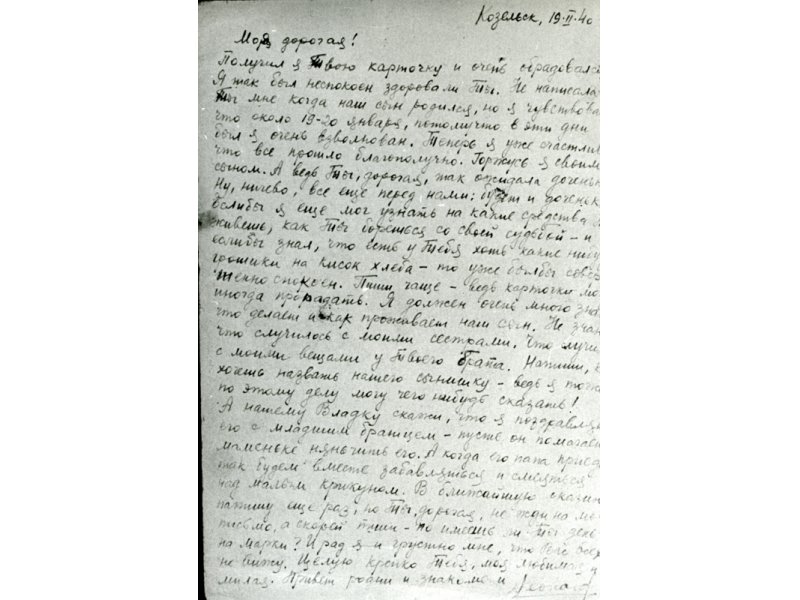 Козельск, 19.II.40
Моя дорогая!
Получил я Твою карточку и очень обрадовался
Я так был неспокоен здоровали Ты. Не написала
Ты мне когда наш сын родился, но я чувствова
что около 19-20 января, потомучто в эти дни
был я очень взволнован. Теперь я уже счастлив
что все прошло благополучно. Горжусь я своим
сыном. А ведь Ты, дорогая, так ожидала доченьк
Ну, ничево, все еще перед нами: будет и доченьк
Еслибы я еще мог узнать на какие средства
живешь, как Ты борешься со своей судьбой - и
еслибы знал, что есть у Тебя хоть какие нибу
грошики на кисок хлеба - то уже былбы совер
шенно спокоен. Пиши чаще - ведь карточки мо
иногда пропадать. Я должен очень много зна
что делает и как проживает наш сын. Не зна
что случилось с моими сестрами. Что случи
с моими вещами у Твоего брата. Напиши, к
хочешь назвать нашего сынишку - ведь я тоже
по этому делу могу чего нибудь сказать!
А нашему Владку скажи, что я поздравля
его с младшим братцем - пусть он помогает
маменьке няньчить его. А когда его папа приед
так будем вместе забавляться и смеяться
над малым крикуном. В ближайшую оказию
напишу еще раз, но Ты, дорогая, не жди на мо
письмо, а скорей пиши - по имеешь ли Ты день
на марки? И рад я и грустно мне, что Вас все
не вижу. Целую крепко Тебя, моя любимая и
милая. Привет родни и знакомым